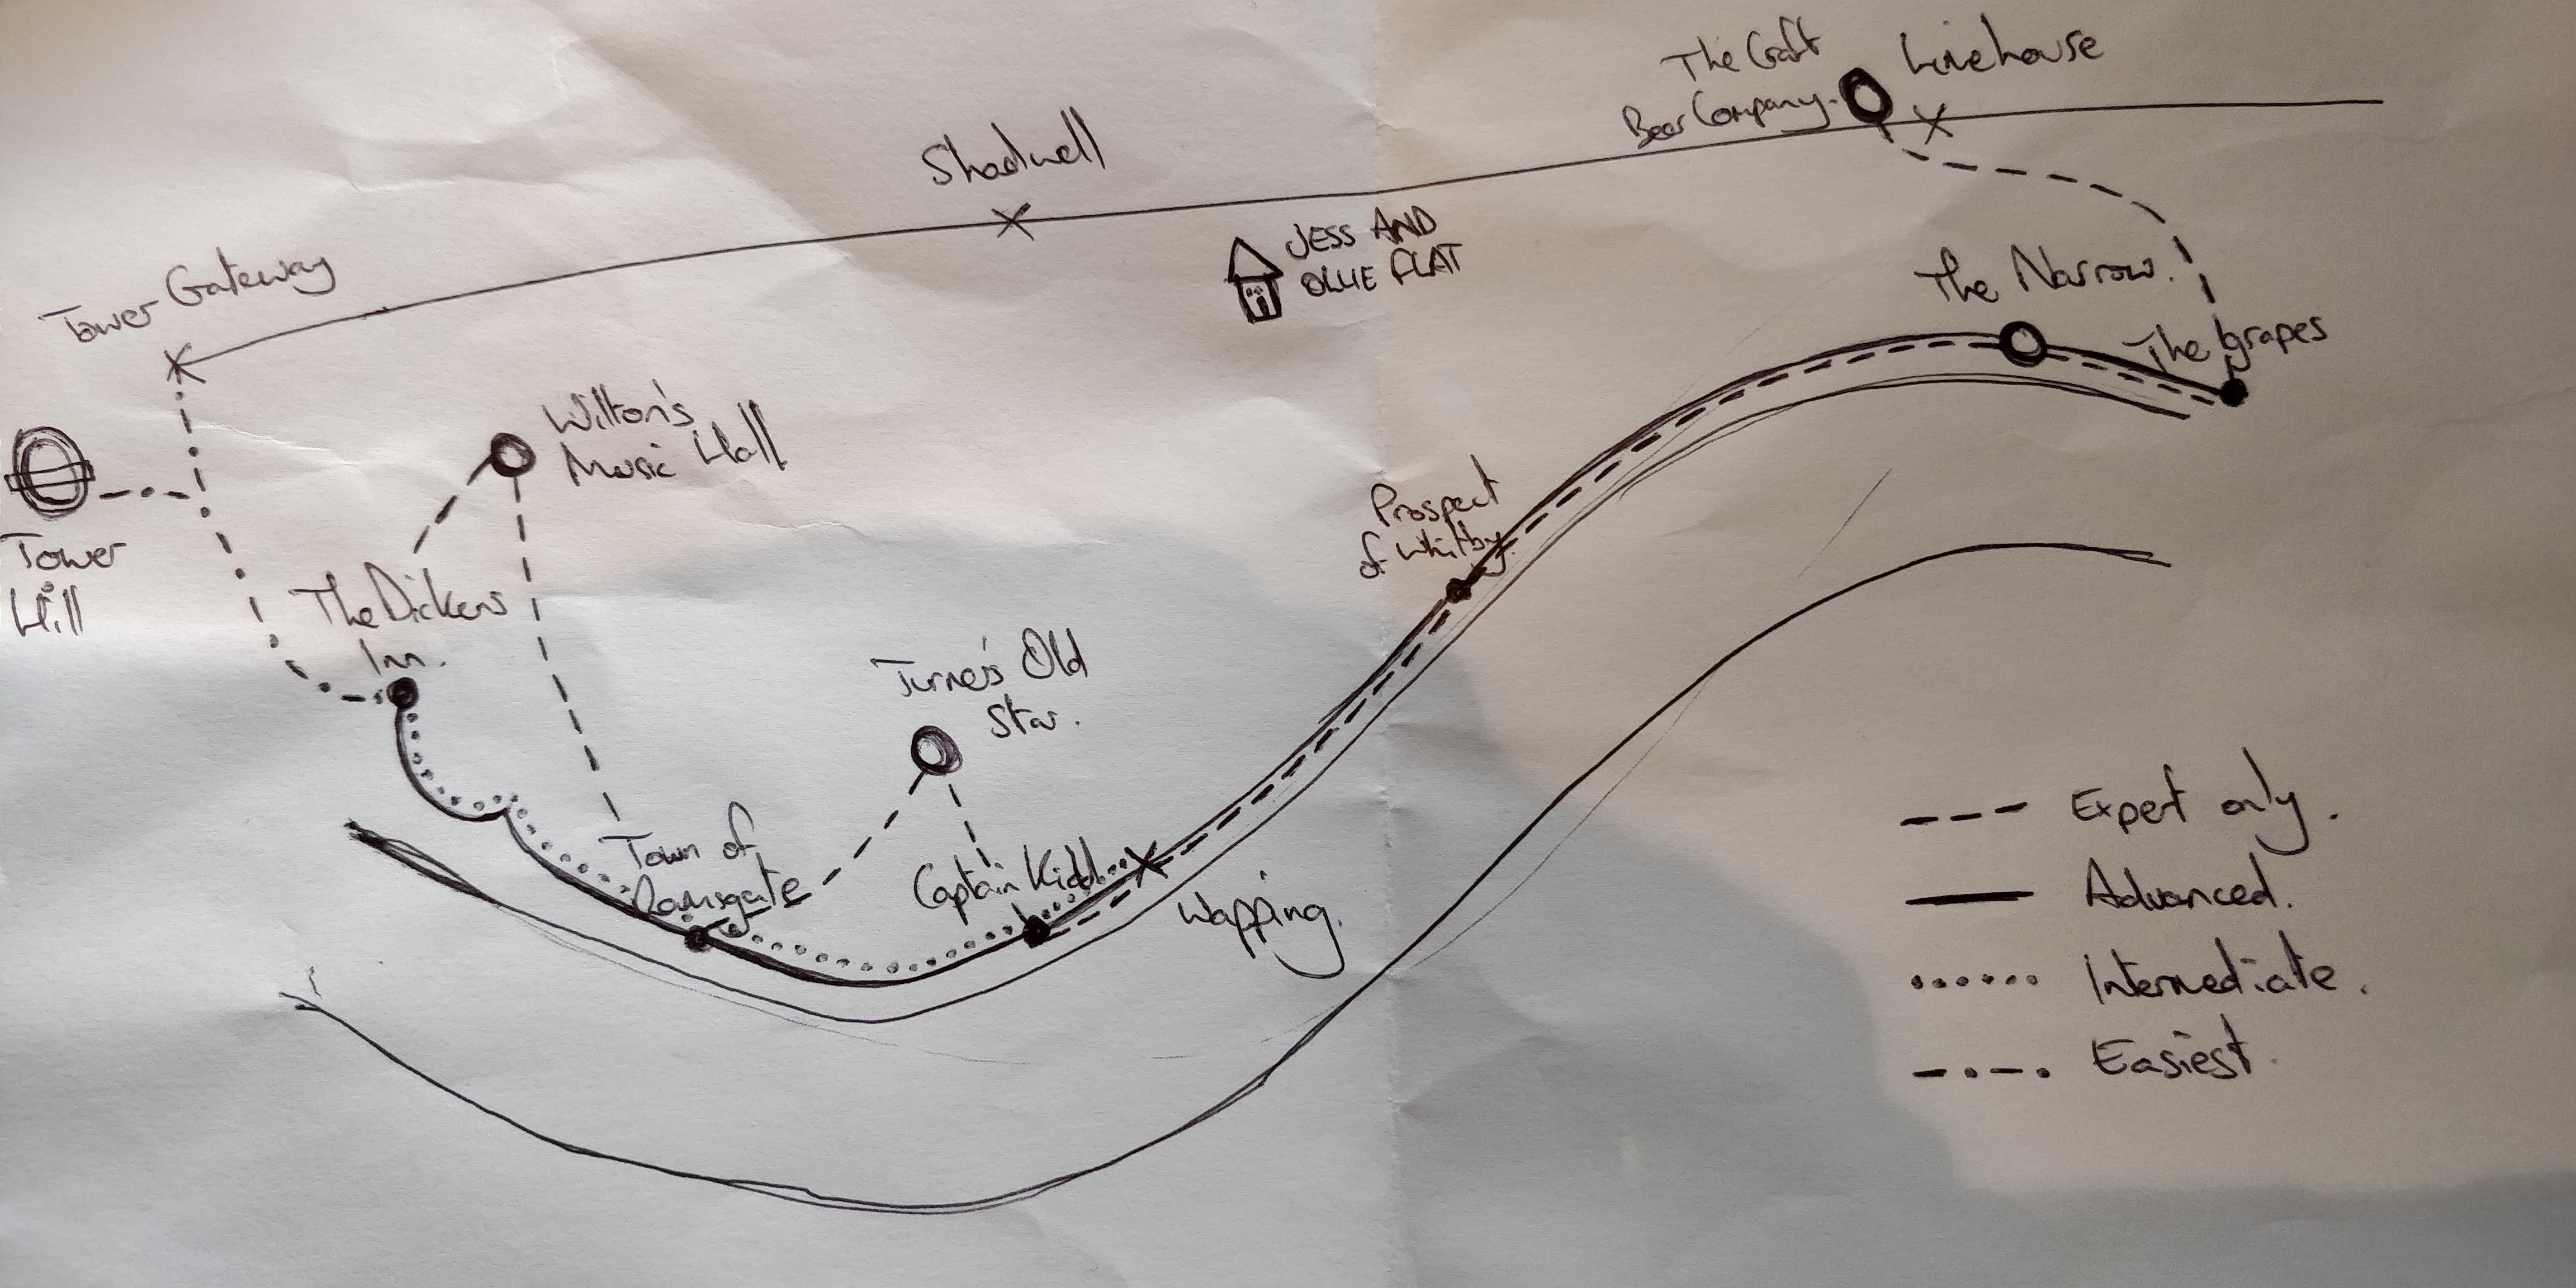 The Craft
Beer Company.
Limehouse
Shadwell
JESS AND
OLLIE FLAT
Tower Gateway
The Narrow.
The Grapes
Wilton's
Music Hall
Tower
Hill
Prospect
of Whitby.
The Dickens
Inn.
Turner's Old
Star.
Town of
Ramsgate
Captain Kidd
Wapping.
Expert only.
Advanced.
Intermediate.
Easiest.